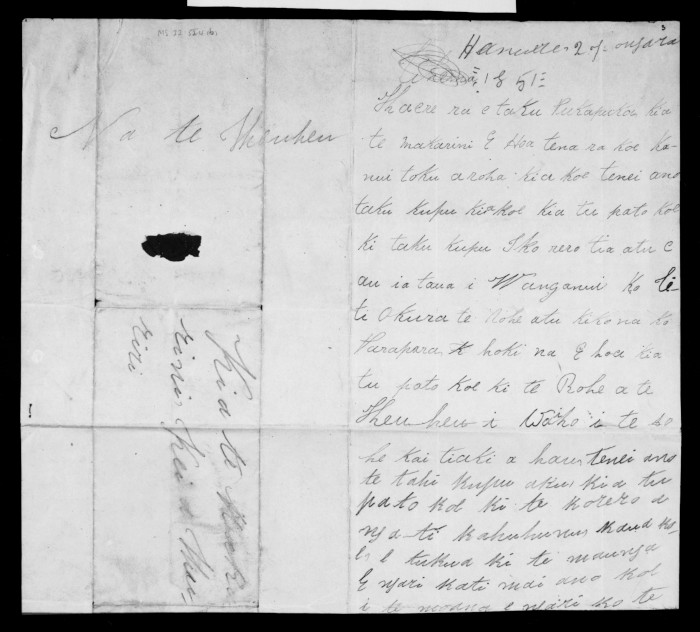 Na te Heuheu
Kia te Maka
rini Kei a Hau
riri
Hanuere 2 o nga ra
1851
Haere ra e taku Pukapuka kia
te Makarini E Hoa tena ra koe Ka
nui toku aroha kia koe tenei ano
taku kupu kia koe kia tu pato koe
ki taku kupu I ko rero tia atu e
au ia taua i Wanganui ko
ti Okura te Rohe atu kiko na ko
Parapara hoki na E hoa kia
tu pato koe ki te Rohe a te
Heu heu i Waho i te Ro
he kai tiaki a hau tenei ano
te tahi kupu aku kia tu
pato koe ki te korero a
nga ti kahuhunu kaua ko
e e tukua ki te maunga
E ngari kati mai ano koe
i te moana e ngari ko te